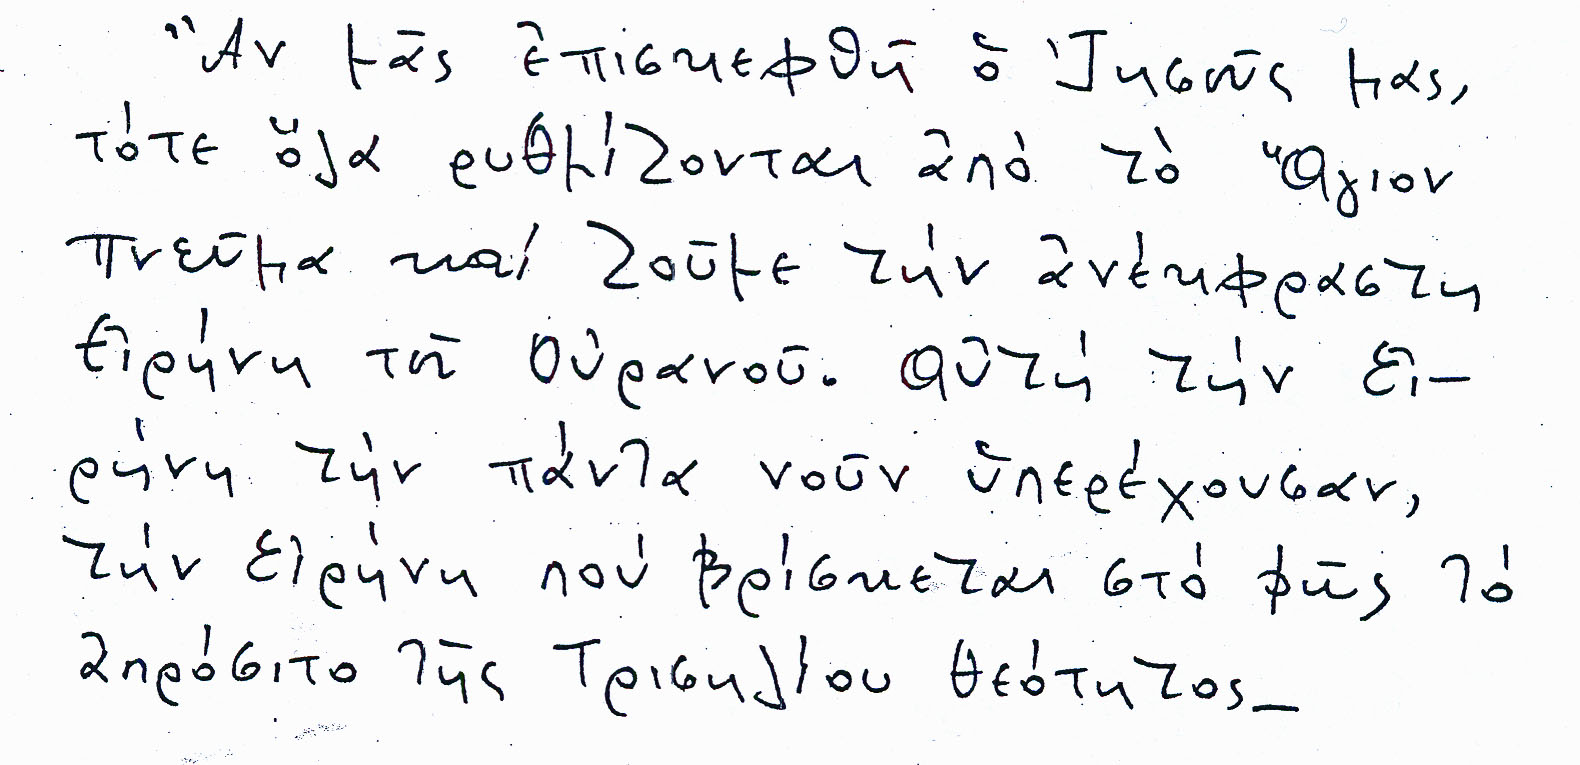 Ἂν μᾶς ἐπισκεφθῆ ὁ Ἰησοῦς μας,
τότε ὅλα ρυθμίζονται ἀπὸ τὸ Ἅγιον
Πνεῦμα καί ζοῦμε τήν ἀνέκφραστη
εἰρήνη τοῦ Οὐρανοῦ. Αὐτή τήν εἰ-
ρήνη τήν πάντα νοῦν ὑπερέχουσαν,
τήν εἰρήνη πού βρίσκεται στό φῶς τό
ἀπρόσιτο τῆς Τρισηλίου θεότητος_